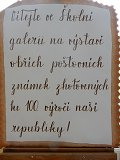 Vítejte ve Školní
galerii na výstavě
obřích poštovních
známek zhotovených
ke 100. výročí naší
republiky!